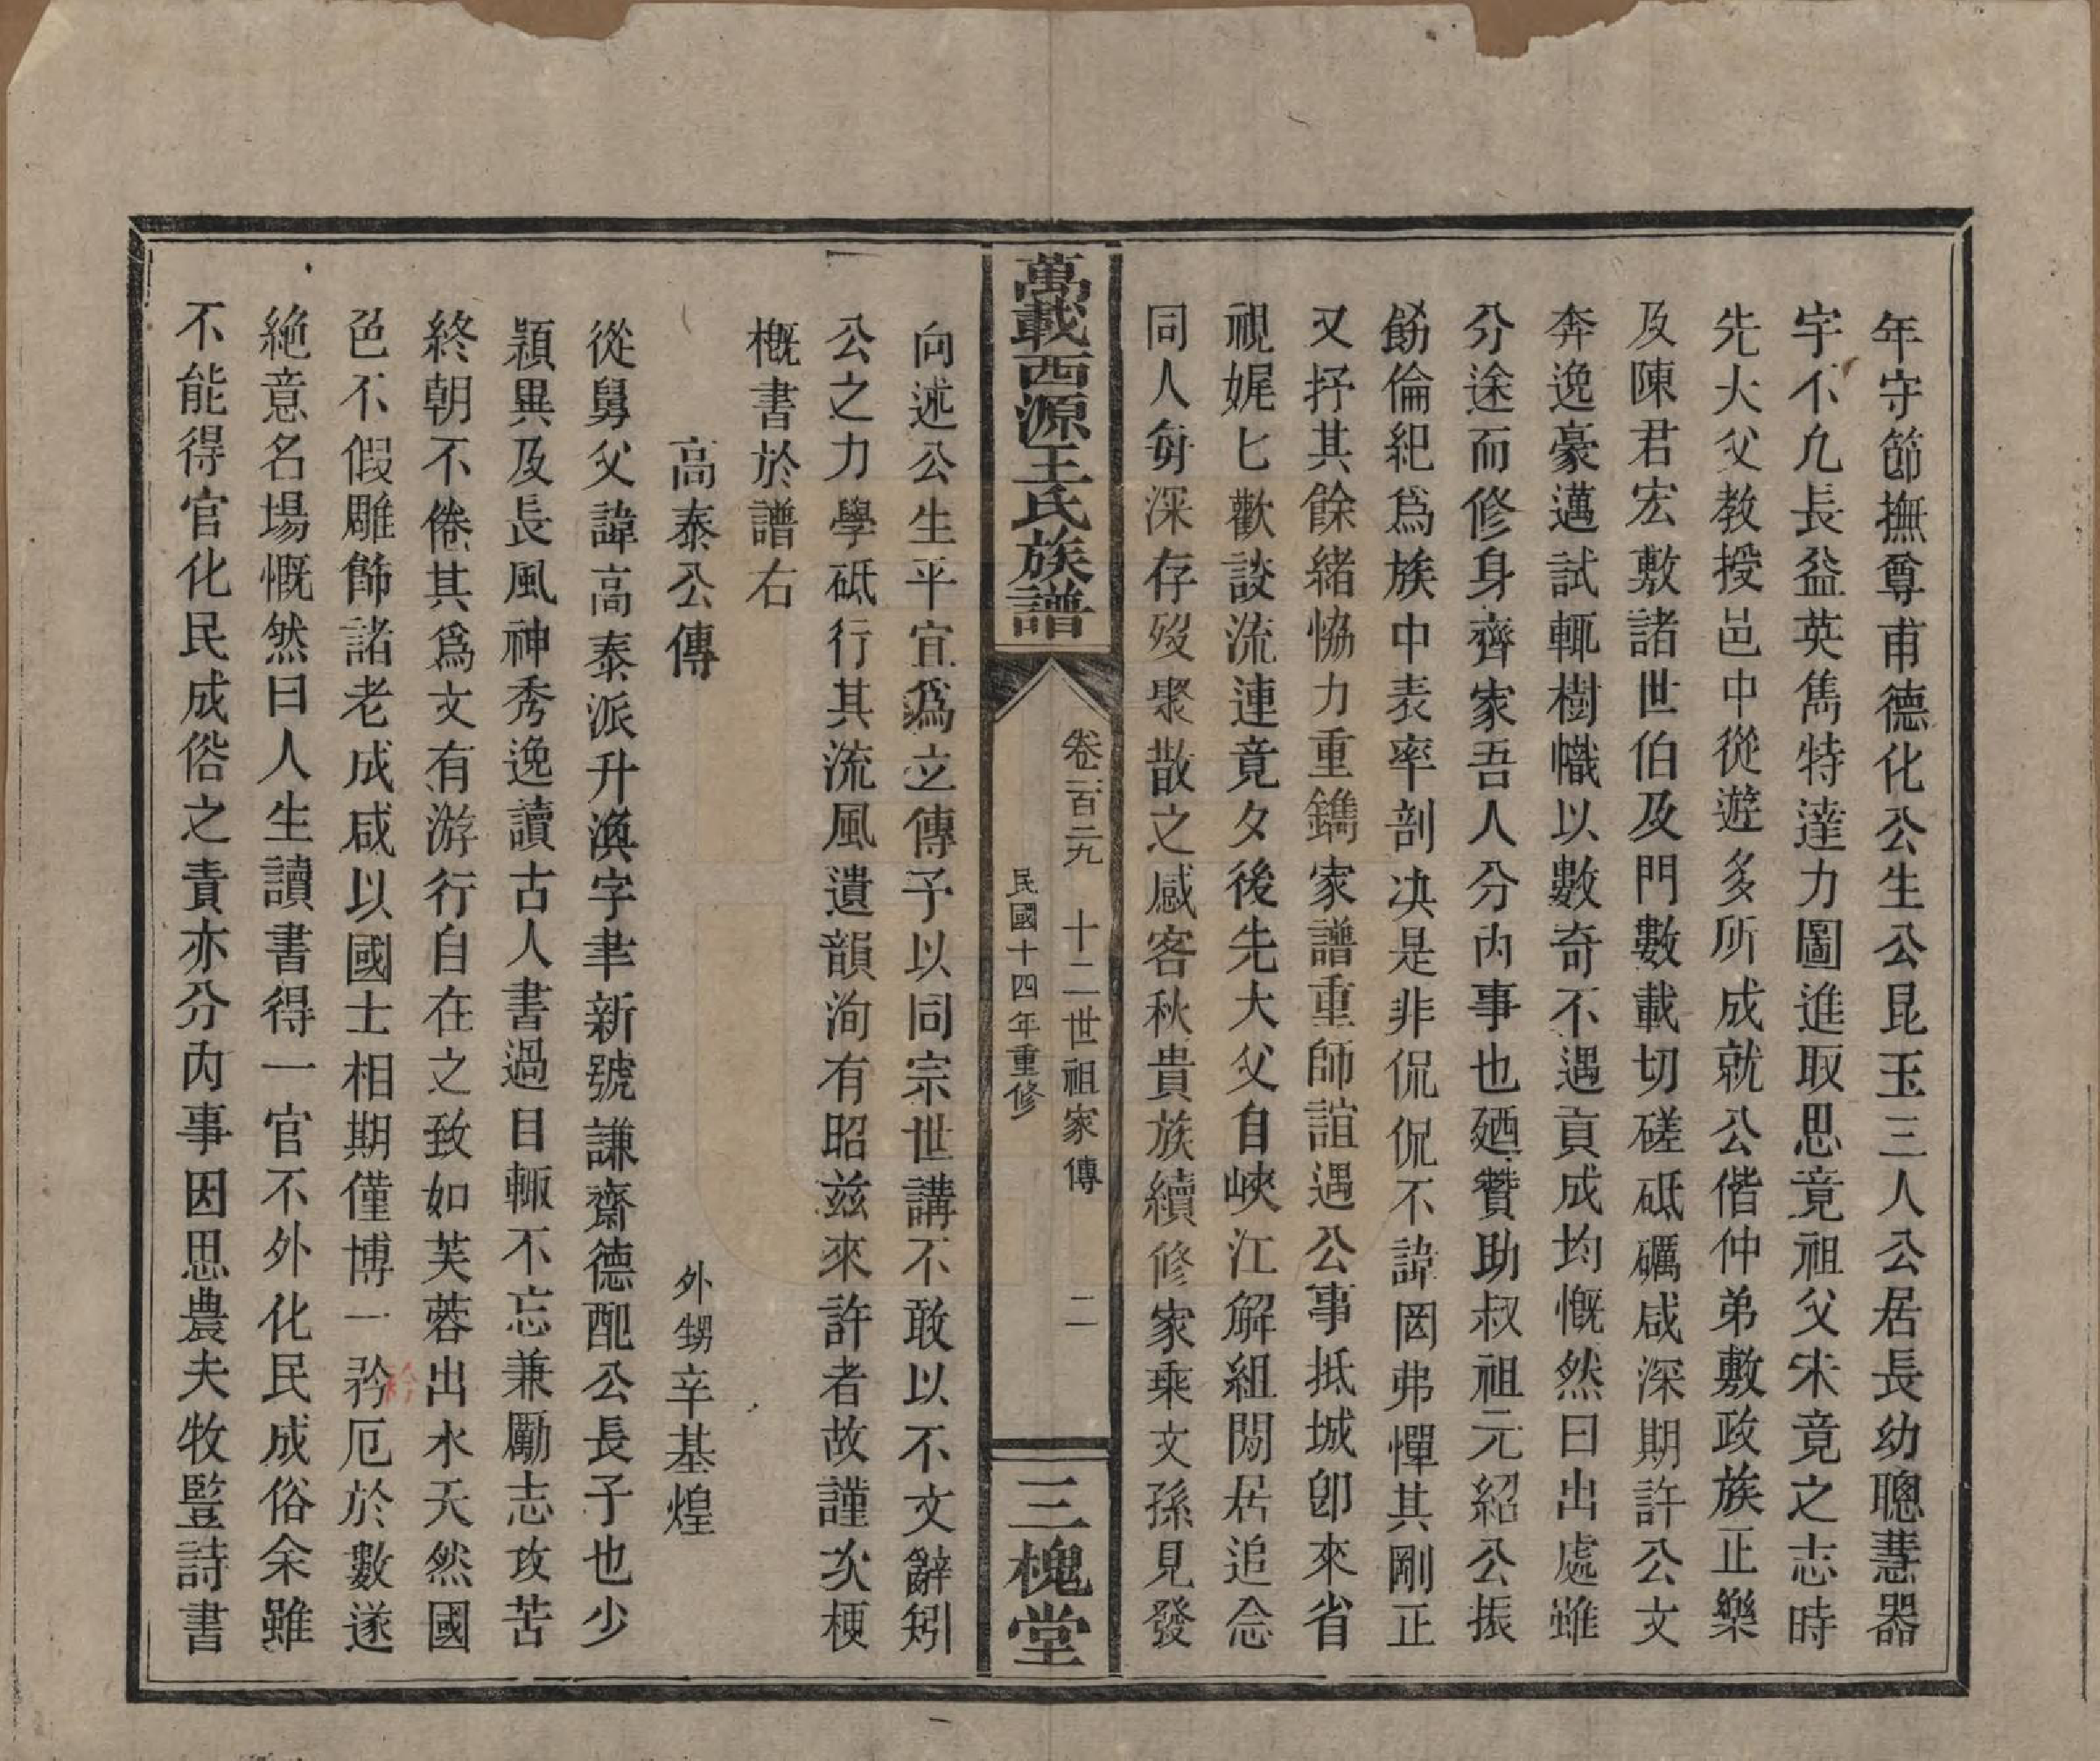 年守節撫尊甫德化公生公昆玉三人公居長幼聰慧器
宇不凡長益英雋特達力圖進取思竟祖父未竟之志時
先大父教授邑中從遊多所成就公偕仲弟敷政族正樂
及陳君宏敷諸世伯及門數載切磋砥礪咸深期許公文
奔逸豪邁試輒樹幟以數奇不遇貢成均慨然曰出處雖
分途而修身齊家吾人分內事也廼贊助叔祖元紹公振
飭倫紀爲族中表率剖决是非侃侃不諱罔弗憚其剛正
又抒其餘緒恊力重鐫家譜重師誼遇公事抵城卽來省
視娓匕歡談流連竟夕後先大父自峽江解組閒居追念
同人每深存歿聚散之感客秋貴族續修家乘文孫見發
萬載西源王氏族譜
卷二百二九 十二世祖家傳 二
民國十四年重修
三槐堂
向述公生平宜爲立傳予以同宗世講不敢以不文辭矧
公之力學砥行其流風遺韻洵有昭兹來許者故謹次梗
概書於譜右
高泰公傳 外甥辛基煌
從舅父諱高泰派升渙字聿新號謙齋德配公長子也少
穎異及長風神秀逸讀古人書過目輒不忘兼勵志攻苦
終朝不倦其爲文有游行自在之致如芙蓉出水天然國
色不假雕飾諸老成咸以國士相期僅博一矜厄於數遂
絶意名場慨然曰人生讀書得一官不外化民成俗余雖
不能得官化民成俗之責亦分內事因思農夫牧豎詩書